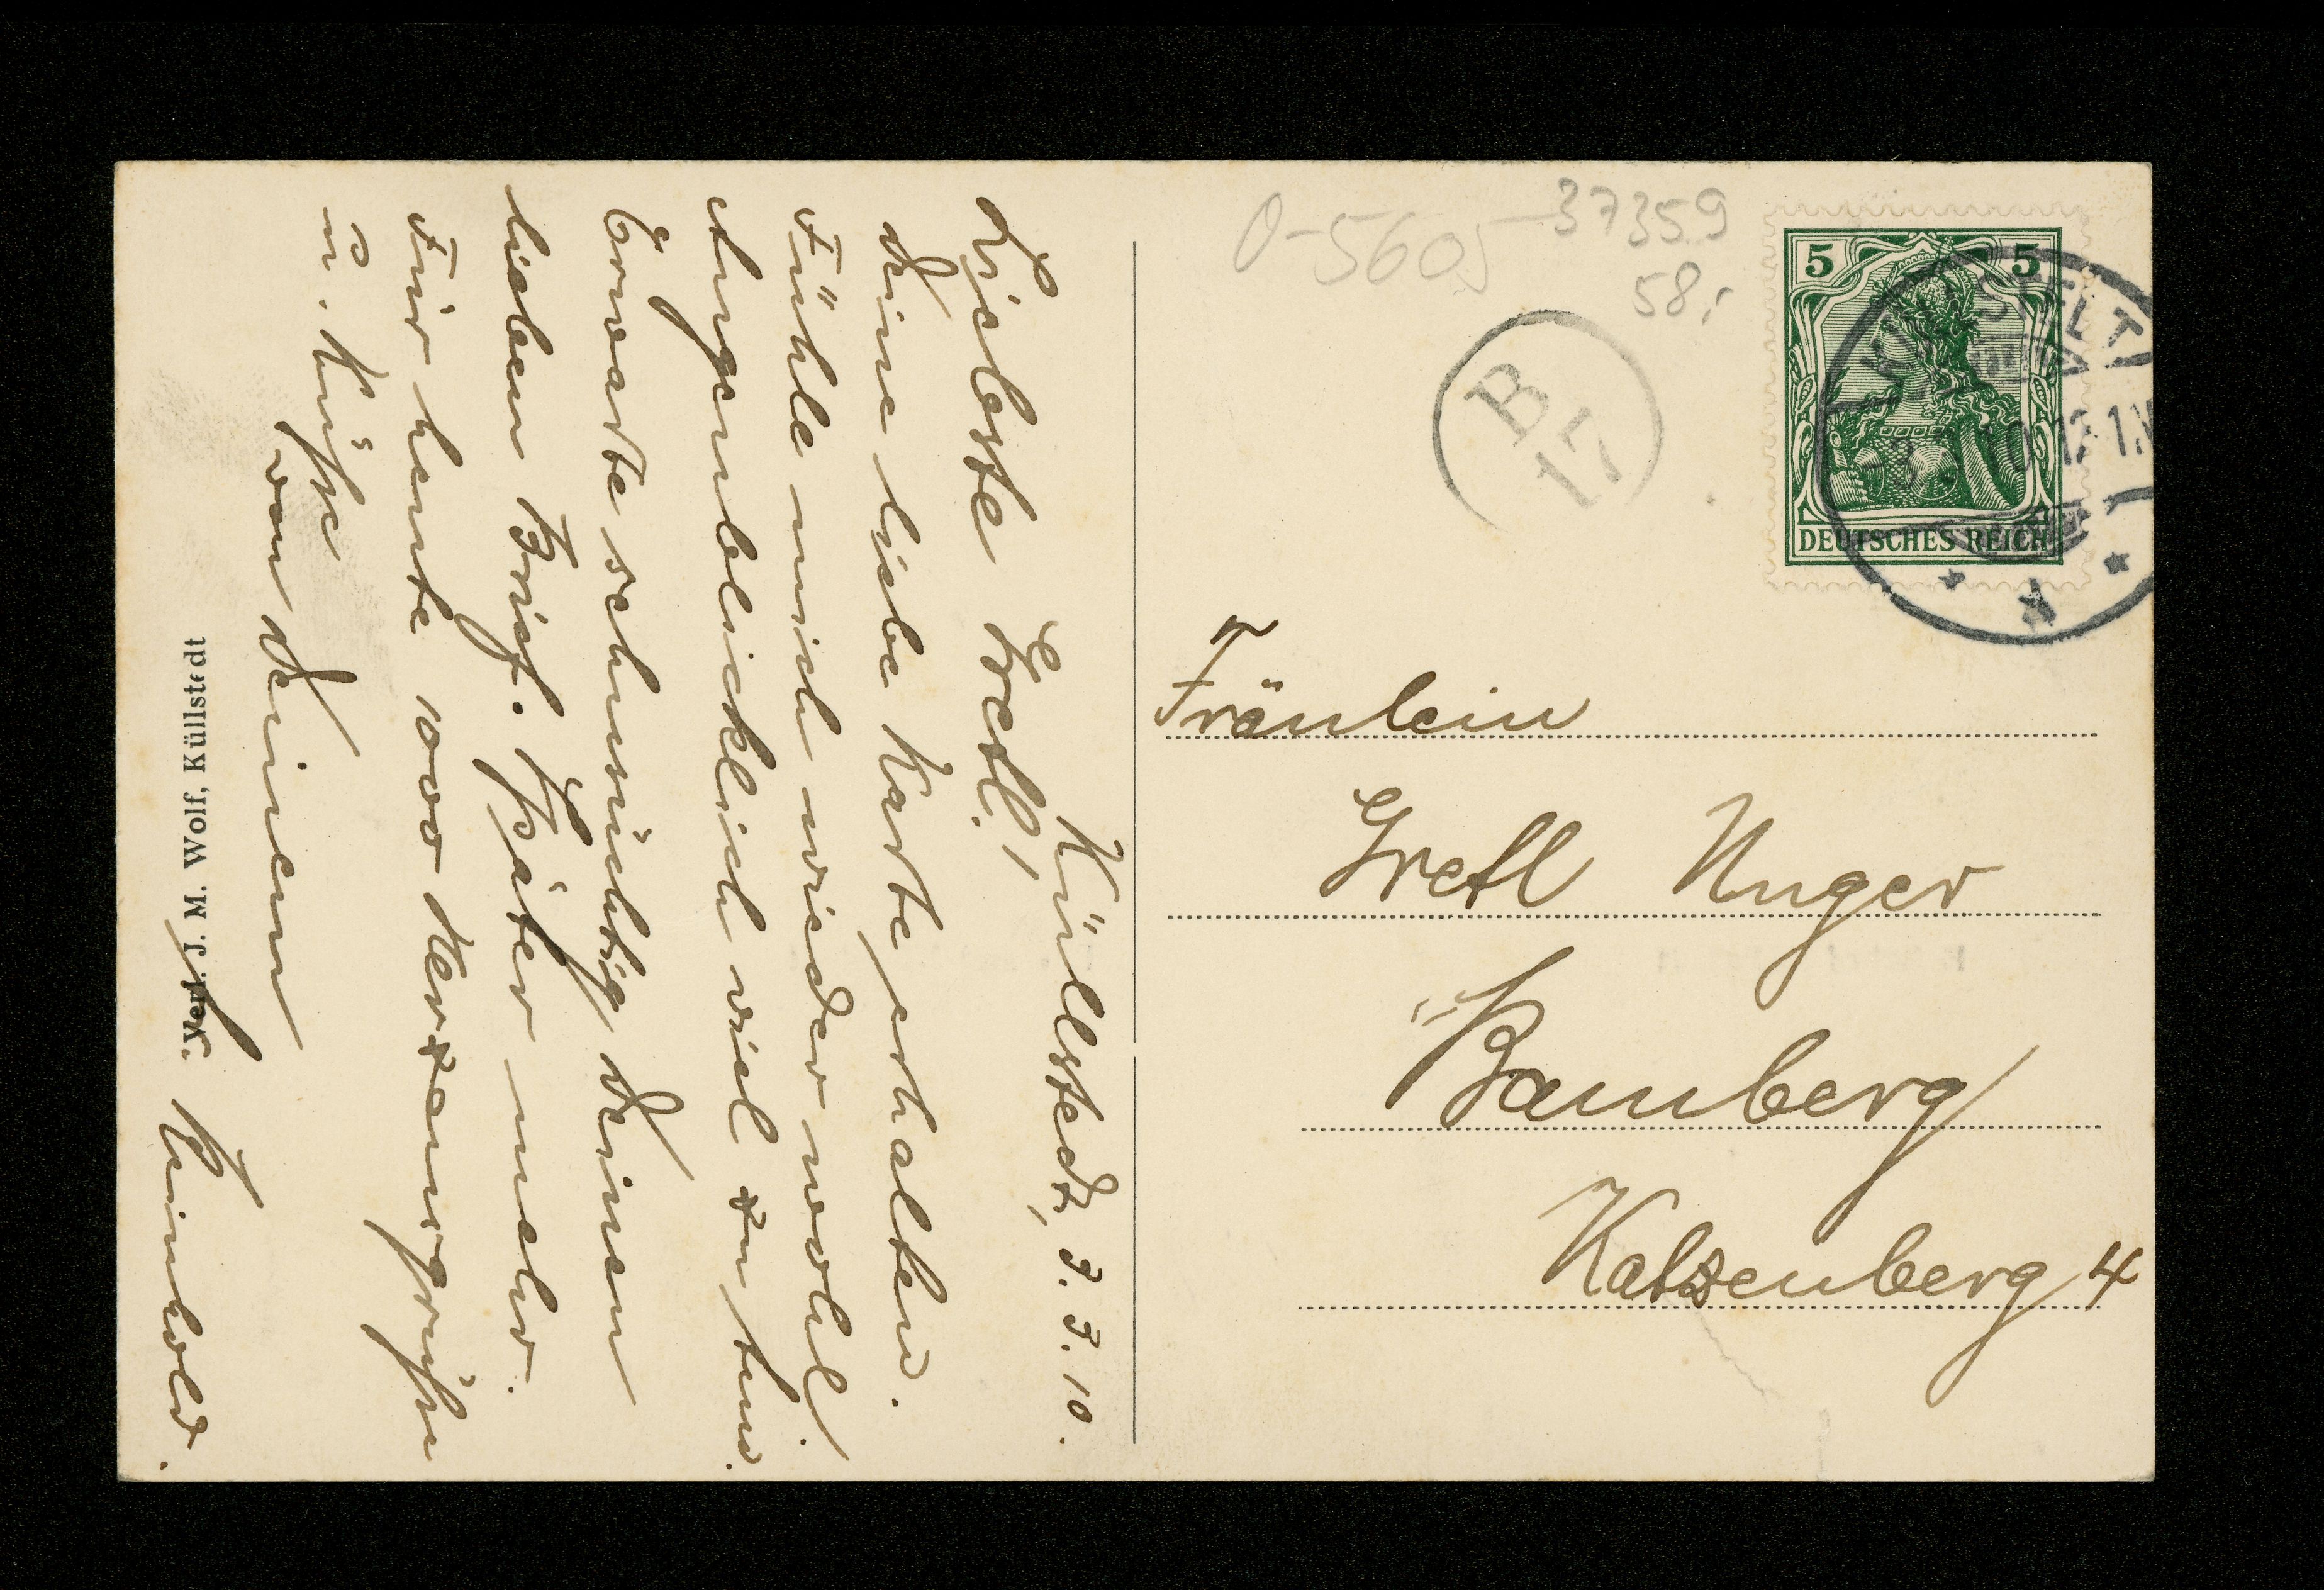 Küllstedt, 3.3.10.
Liebste Gretl!
Deine liebe Karte erhalten.
Fühle mich wieder wohl.
Augenblicklich viel zu tun.
Erwarte sehnsüchtig Deinen
lieben Brief. Später mehr.
Für heute 1000 Herzensgrüße
u. Küsse
von Deinem
Reinhold.
Verl. J. M. Wolf, Küllstedt
0-5605
37359
58,-
B
17
5 5
DEUTSCHES REICH
Fräulein
Gretl Unger
Bamberg
Katzenberg 4